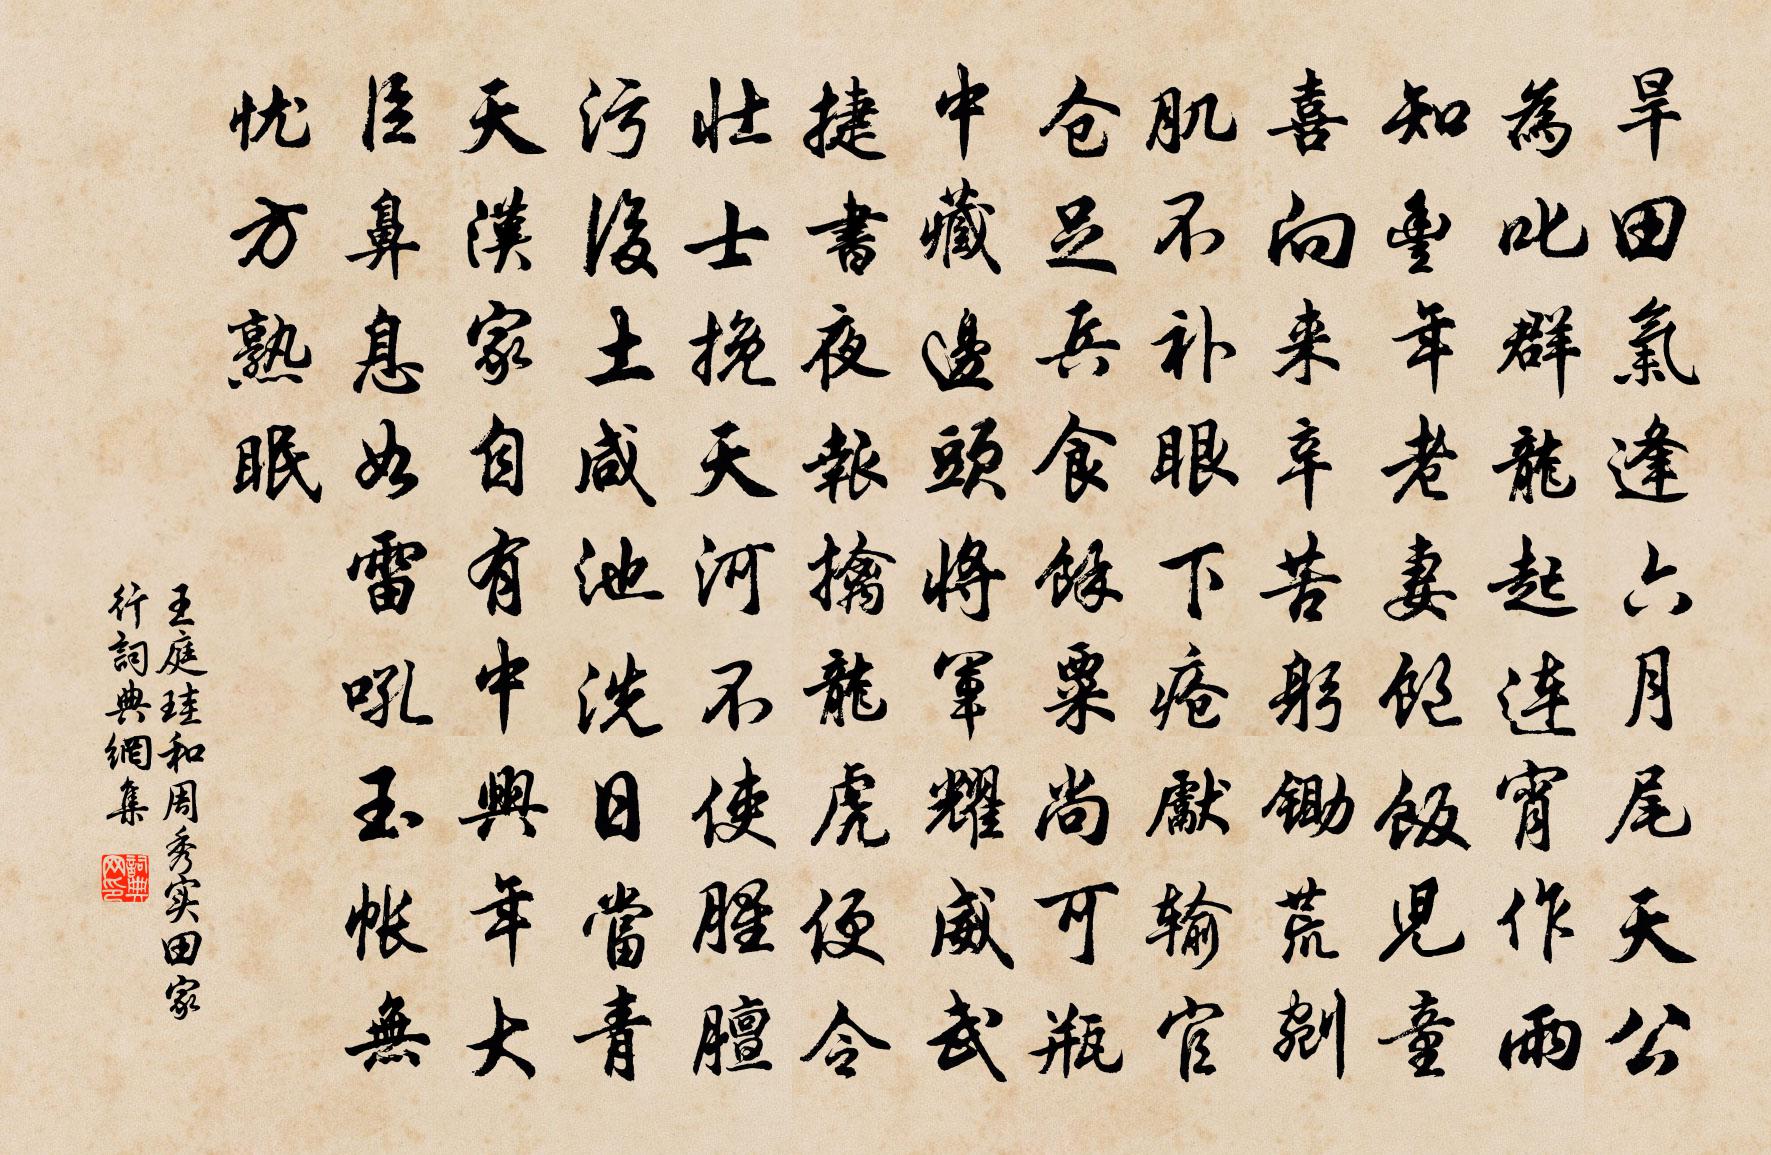 旱田氣逢六月尾天公
為叱群龍起連宵作雨
知豊年老妻飽飯兒童
喜向来辛苦躬鋤荒剜
肌不补眼下疮獻输官
仓足兵食餘粟尚可瓶
中藏邊頭將軍耀威武
捷書夜報擒龍虎便令
壮士挽天河不使腥膻
污後土咸池洗日當青
天漢家自有中興年大
臣鼻息如雷吼玉帐無
忧方熟眠
王庭珪和周秀实田家
行詞典網集
詞典网印